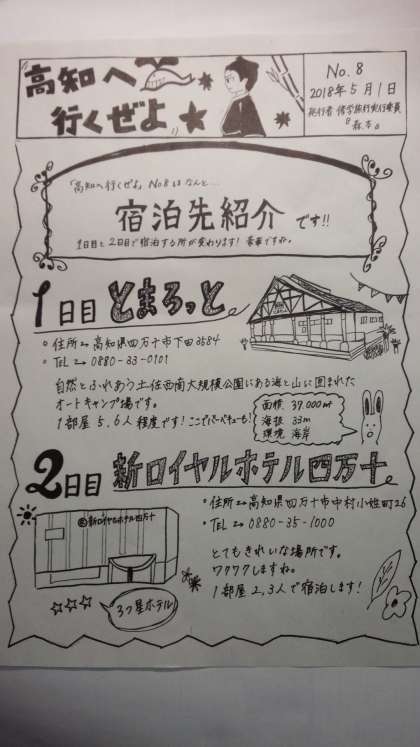 高知へ
行くぜよ
No.8
2018年5月1日
発行者 修学旅行実行委員
「高知へ行くぜよ」No.8はなんと…
宿泊先紹介です!!
1日目と2日目で宿泊する所が変わります!豪華ですね。
1日目 とまろっと
住所→高知県四万十市下田3584
TEL→0880-33-0101
自然とふれあう土佐西南大規模公園にある海と山に囲まれた
オートキャンプ場です。
1部屋5.6人程度です!ここでバーベキューも!
面積 37,000㎡
海抜 33m
環境 海岸
2日目 新ロイヤルホテル四万十
住所→高知県四万十市中村小姓町26
TEL→0880-35-1000
新ロイヤルホテル四万十
とてもきれいな場所です。
ワクワクしますね。
1部屋2,3人で宿泊します!
3つ星ホテル